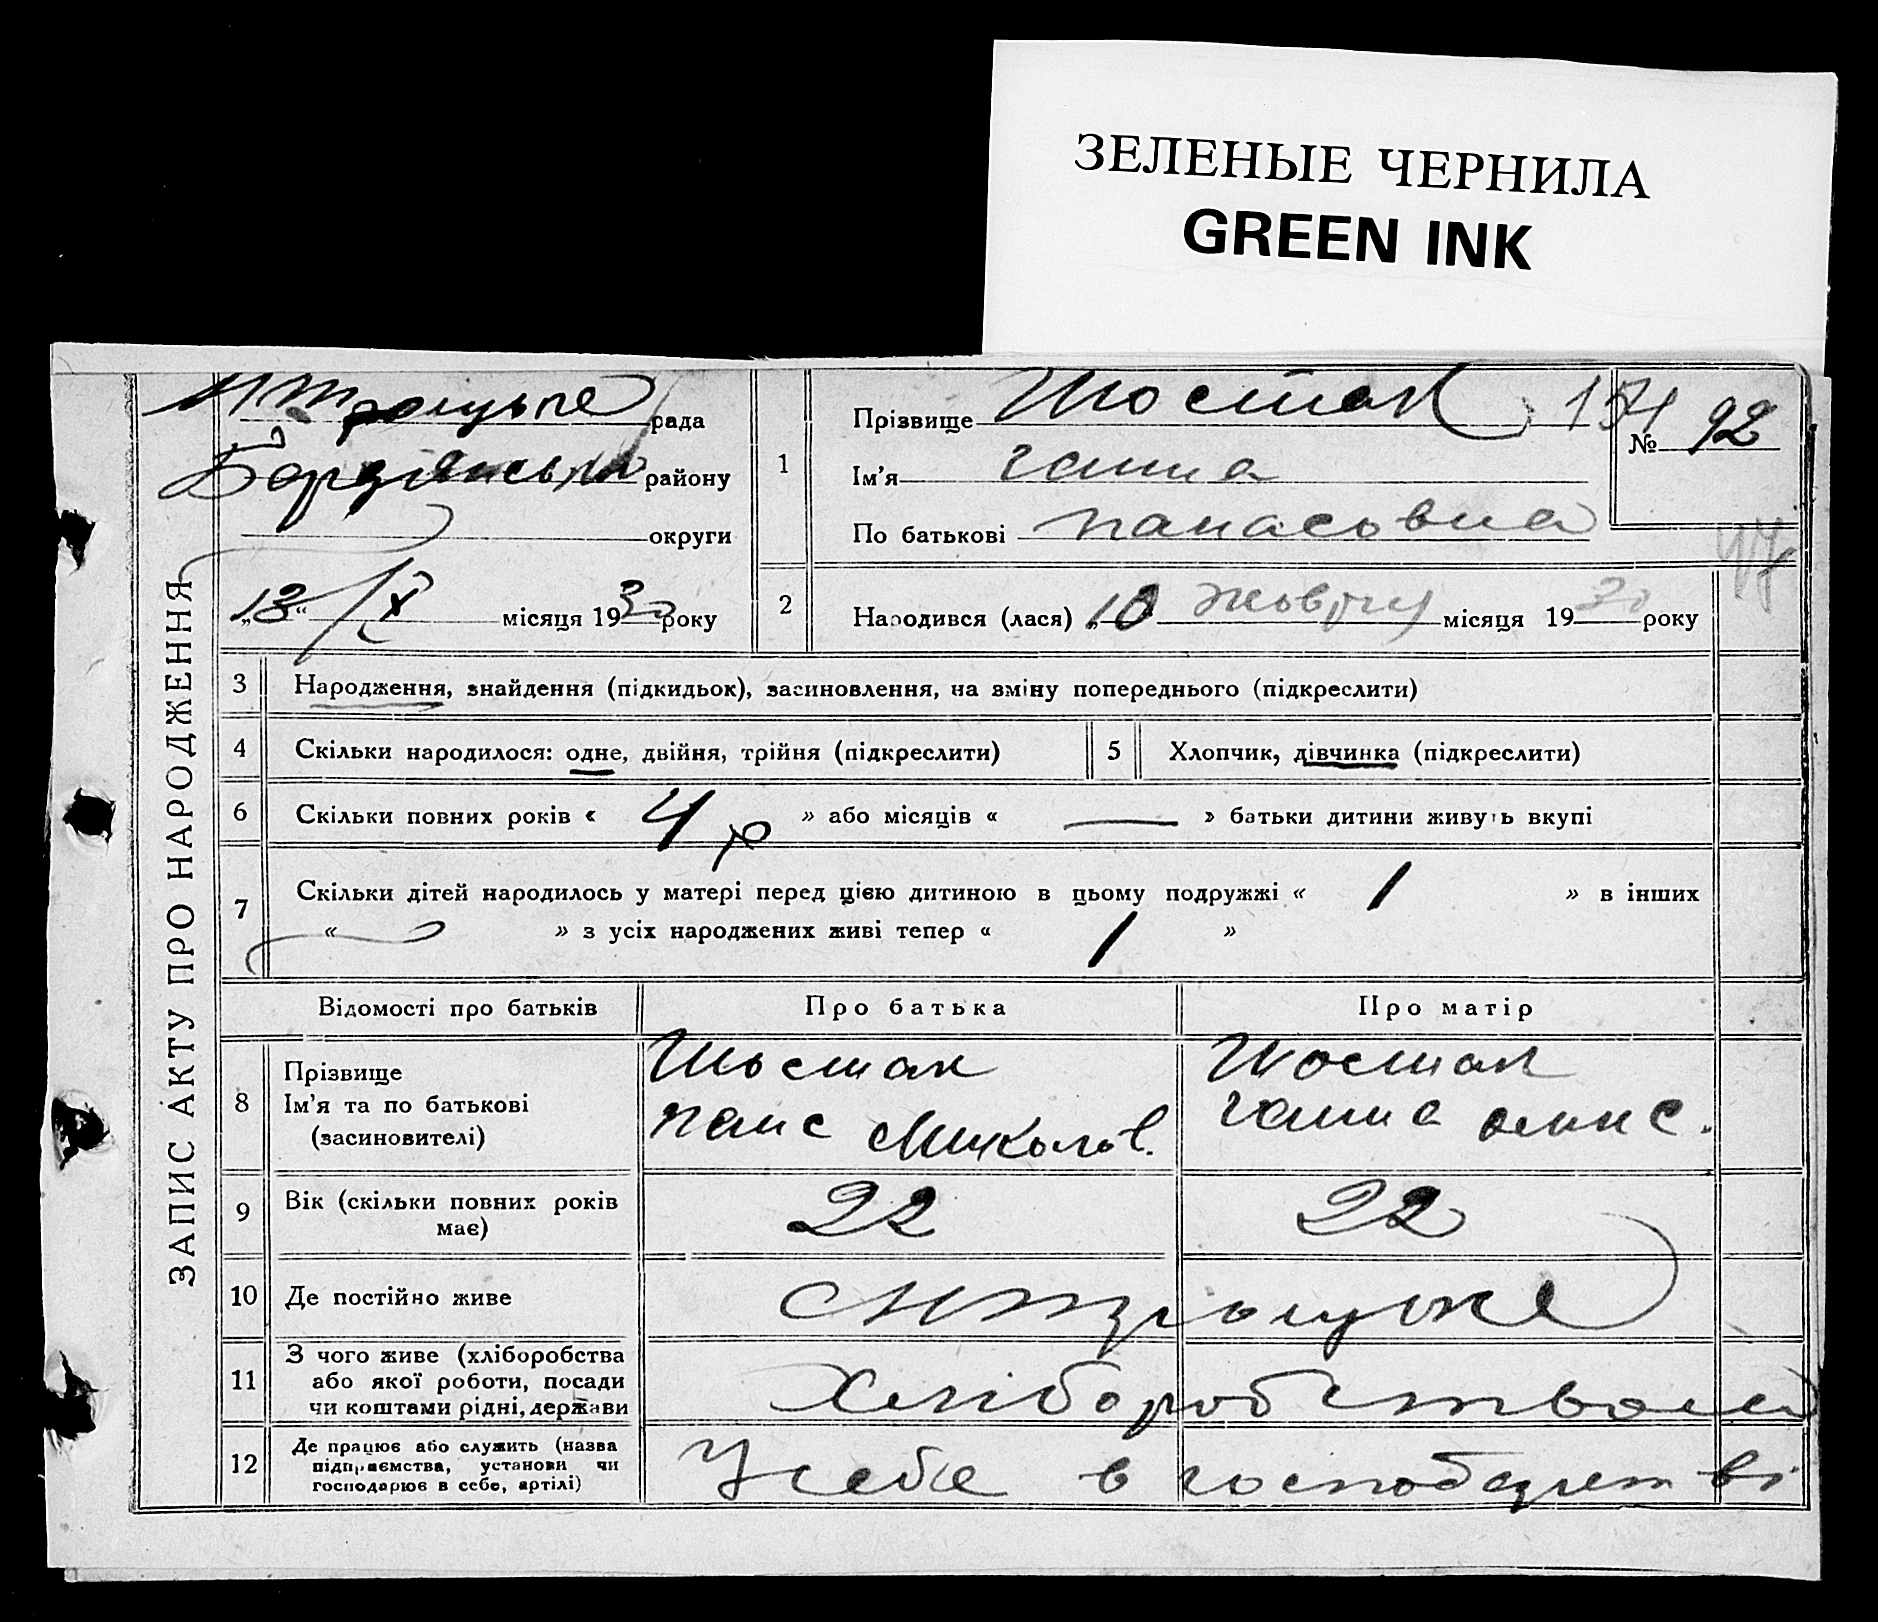 ЗЕЛЕНЫЕ ЧЕРНИЛА
GREEN INK
ЗАПИС АКТУ ПРО НАРОДЖЕННЯ
рада
району
округи
„13“ /X місяця 1930 року
1
Прізвище Шостак
Ім’я Ганна
По батькові Панасовна
№ 92
2
Народився (лася) „10“ Жовтня місяця 1930 року
3 Народження, знайдення (підкидьок), засиновлення, на зміну попереднього (підкреслити)
4 Скільки народилося: одне, двійня, трійня (підкреслити)
5 Хлопчик, дівчинка (підкреслити)
6 Скільки повних років « 4 р » або місяців « — » батьки дитини живуть вкупі
7 Скільки дітей народилось у матері перед цією дитиною в цьому подружжі « 1 » в інших
« » з усіх народжених живі тепер « 1 »
Відомості про батьків Про батька Про матір
8 Прізвище Шостак Шостак
Ім’я та по батькові Миколов. Ганна
(засиновителі)
9 Вік (скільки повних років має) 22 22
10 Де постійно живе
11 З чого живе (хліборобства
або якої роботи, посади
чи коштами рідні, держави
Хліборобством
12 Де працює або служить (назва
підприємства, установи чи
господарює в себе, артілі)
У себе в господарстві